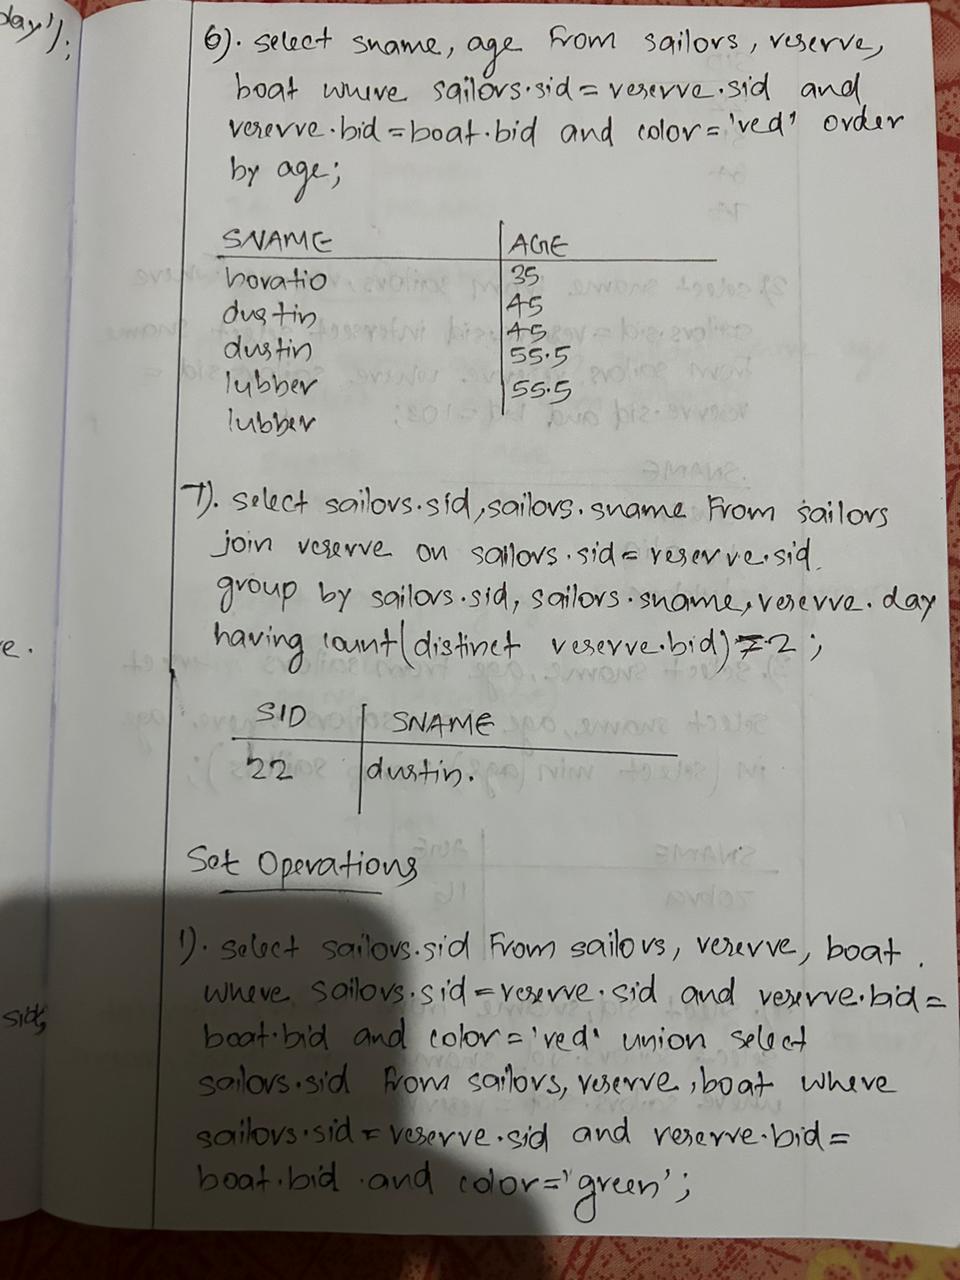 day');
6). select sname, age from sailors, reserve,
boat where sailors.sid = reserve.sid and
reserve.bid = boat.bid and color = 'red' order
by age;
SNAME AGE
horatio 35
dustin 45
dustin 45
lubber 55.5
lubber 55.5
7). select sailors.sid, sailors.sname from sailors
join reserve on sailors.sid = reserve.sid
group by sailors.sid, sailors.sname, reserve.day
e. having count(distinct reserve.bid) = 2;
SID SNAME
22 dustin.
Set Operations
1). select sailors.sid from sailors, reserve, boat
where sailors.sid = reserve.sid and reserve.bid =
sid, boat.bid and color = 'red' union select
sailors.sid from sailors, reserve, boat where
sailors.sid = reserve.sid and reserve.bid =
boat.bid and color = 'green';